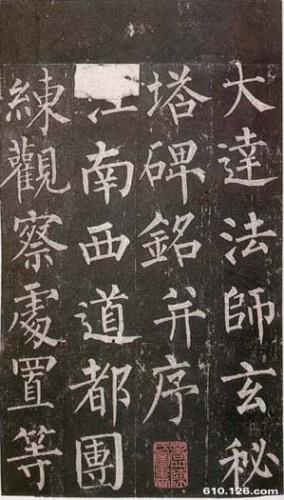 大達法師玄秘
塔碑銘并序
江南西道都團
練觀察處置等
610.126.com